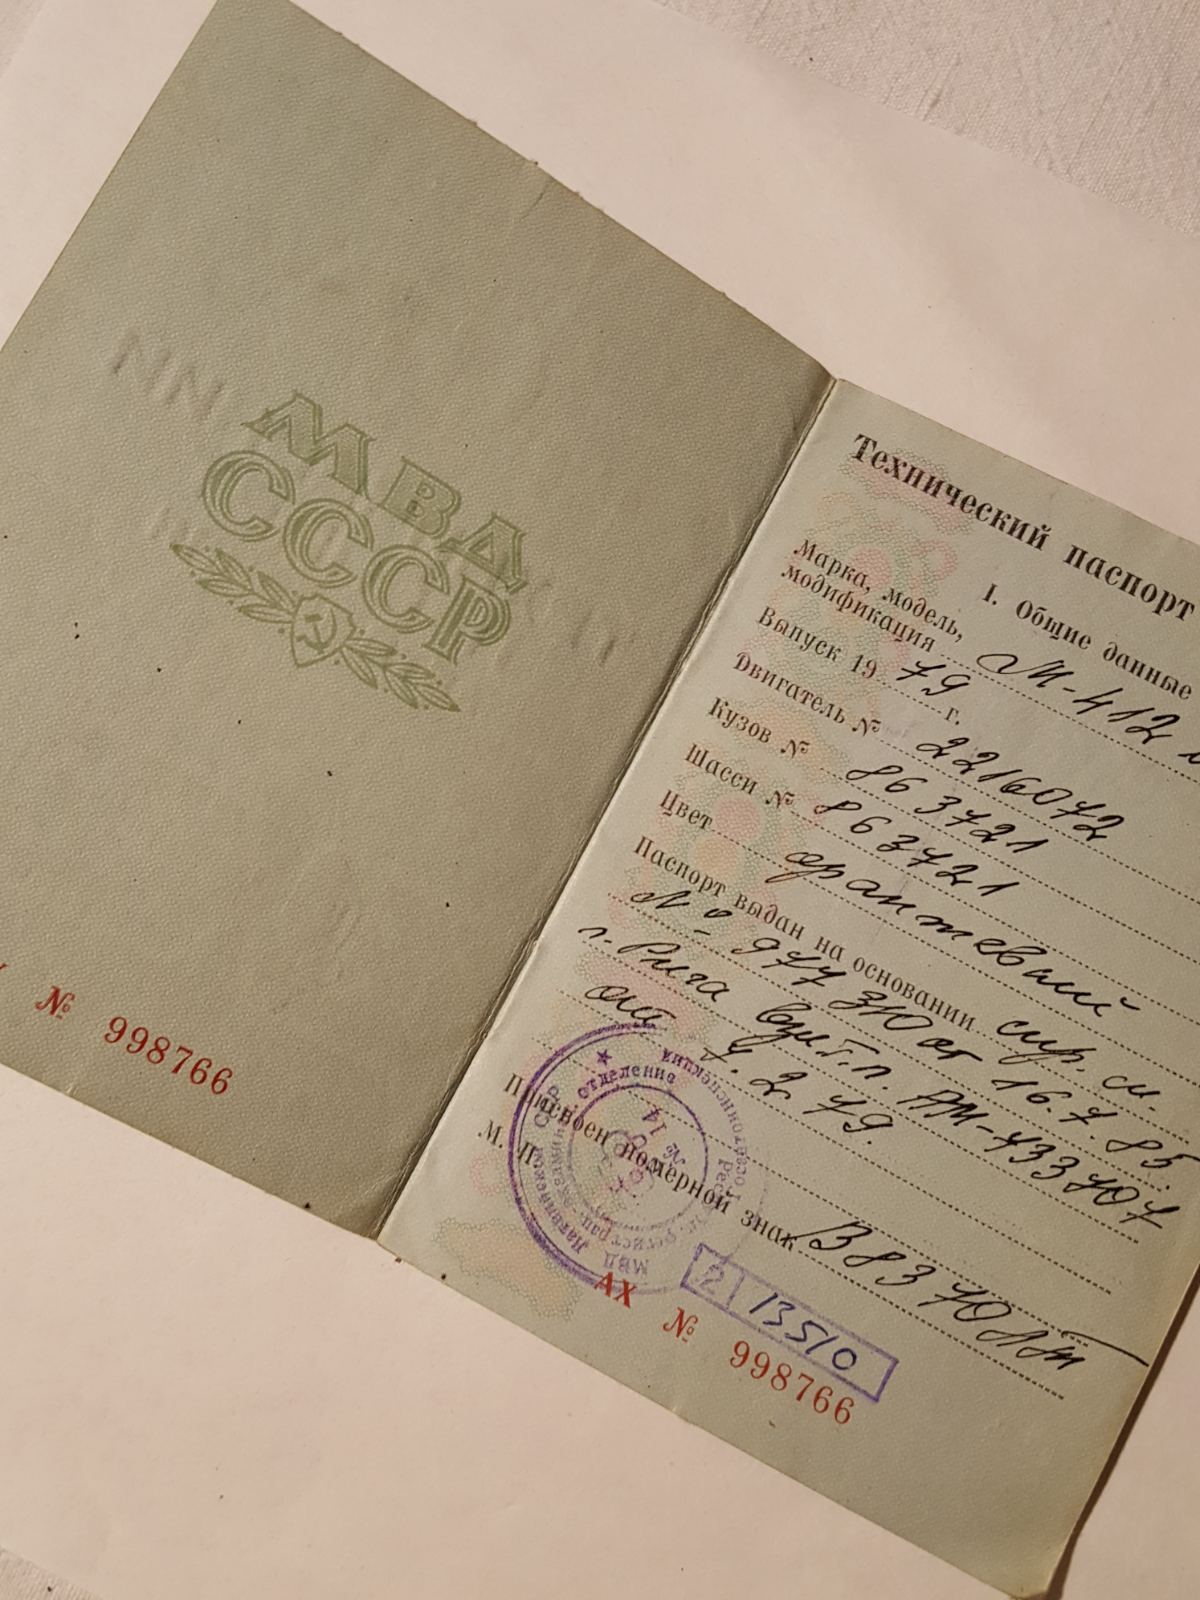 МВД
СССР
№ 998766
Технический паспорт
I. Общие данные
Марка, модель,
модификация М-412
Выпуск 19 79 г.
Двигатель № 2216072
Кузов № 863721
Шасси № 863721
Цвет оранжевый
Паспорт выдан на основании спр. сч.
№ 977370 от 16.7.85
г. Рига взят.п. АМ-433707
от 7.2.79.
Присвоен номерной знак В8370ЛТ
М. П.
МВД Латвийской ССР
отделение
№ 14
2 13510
АХ № 998766